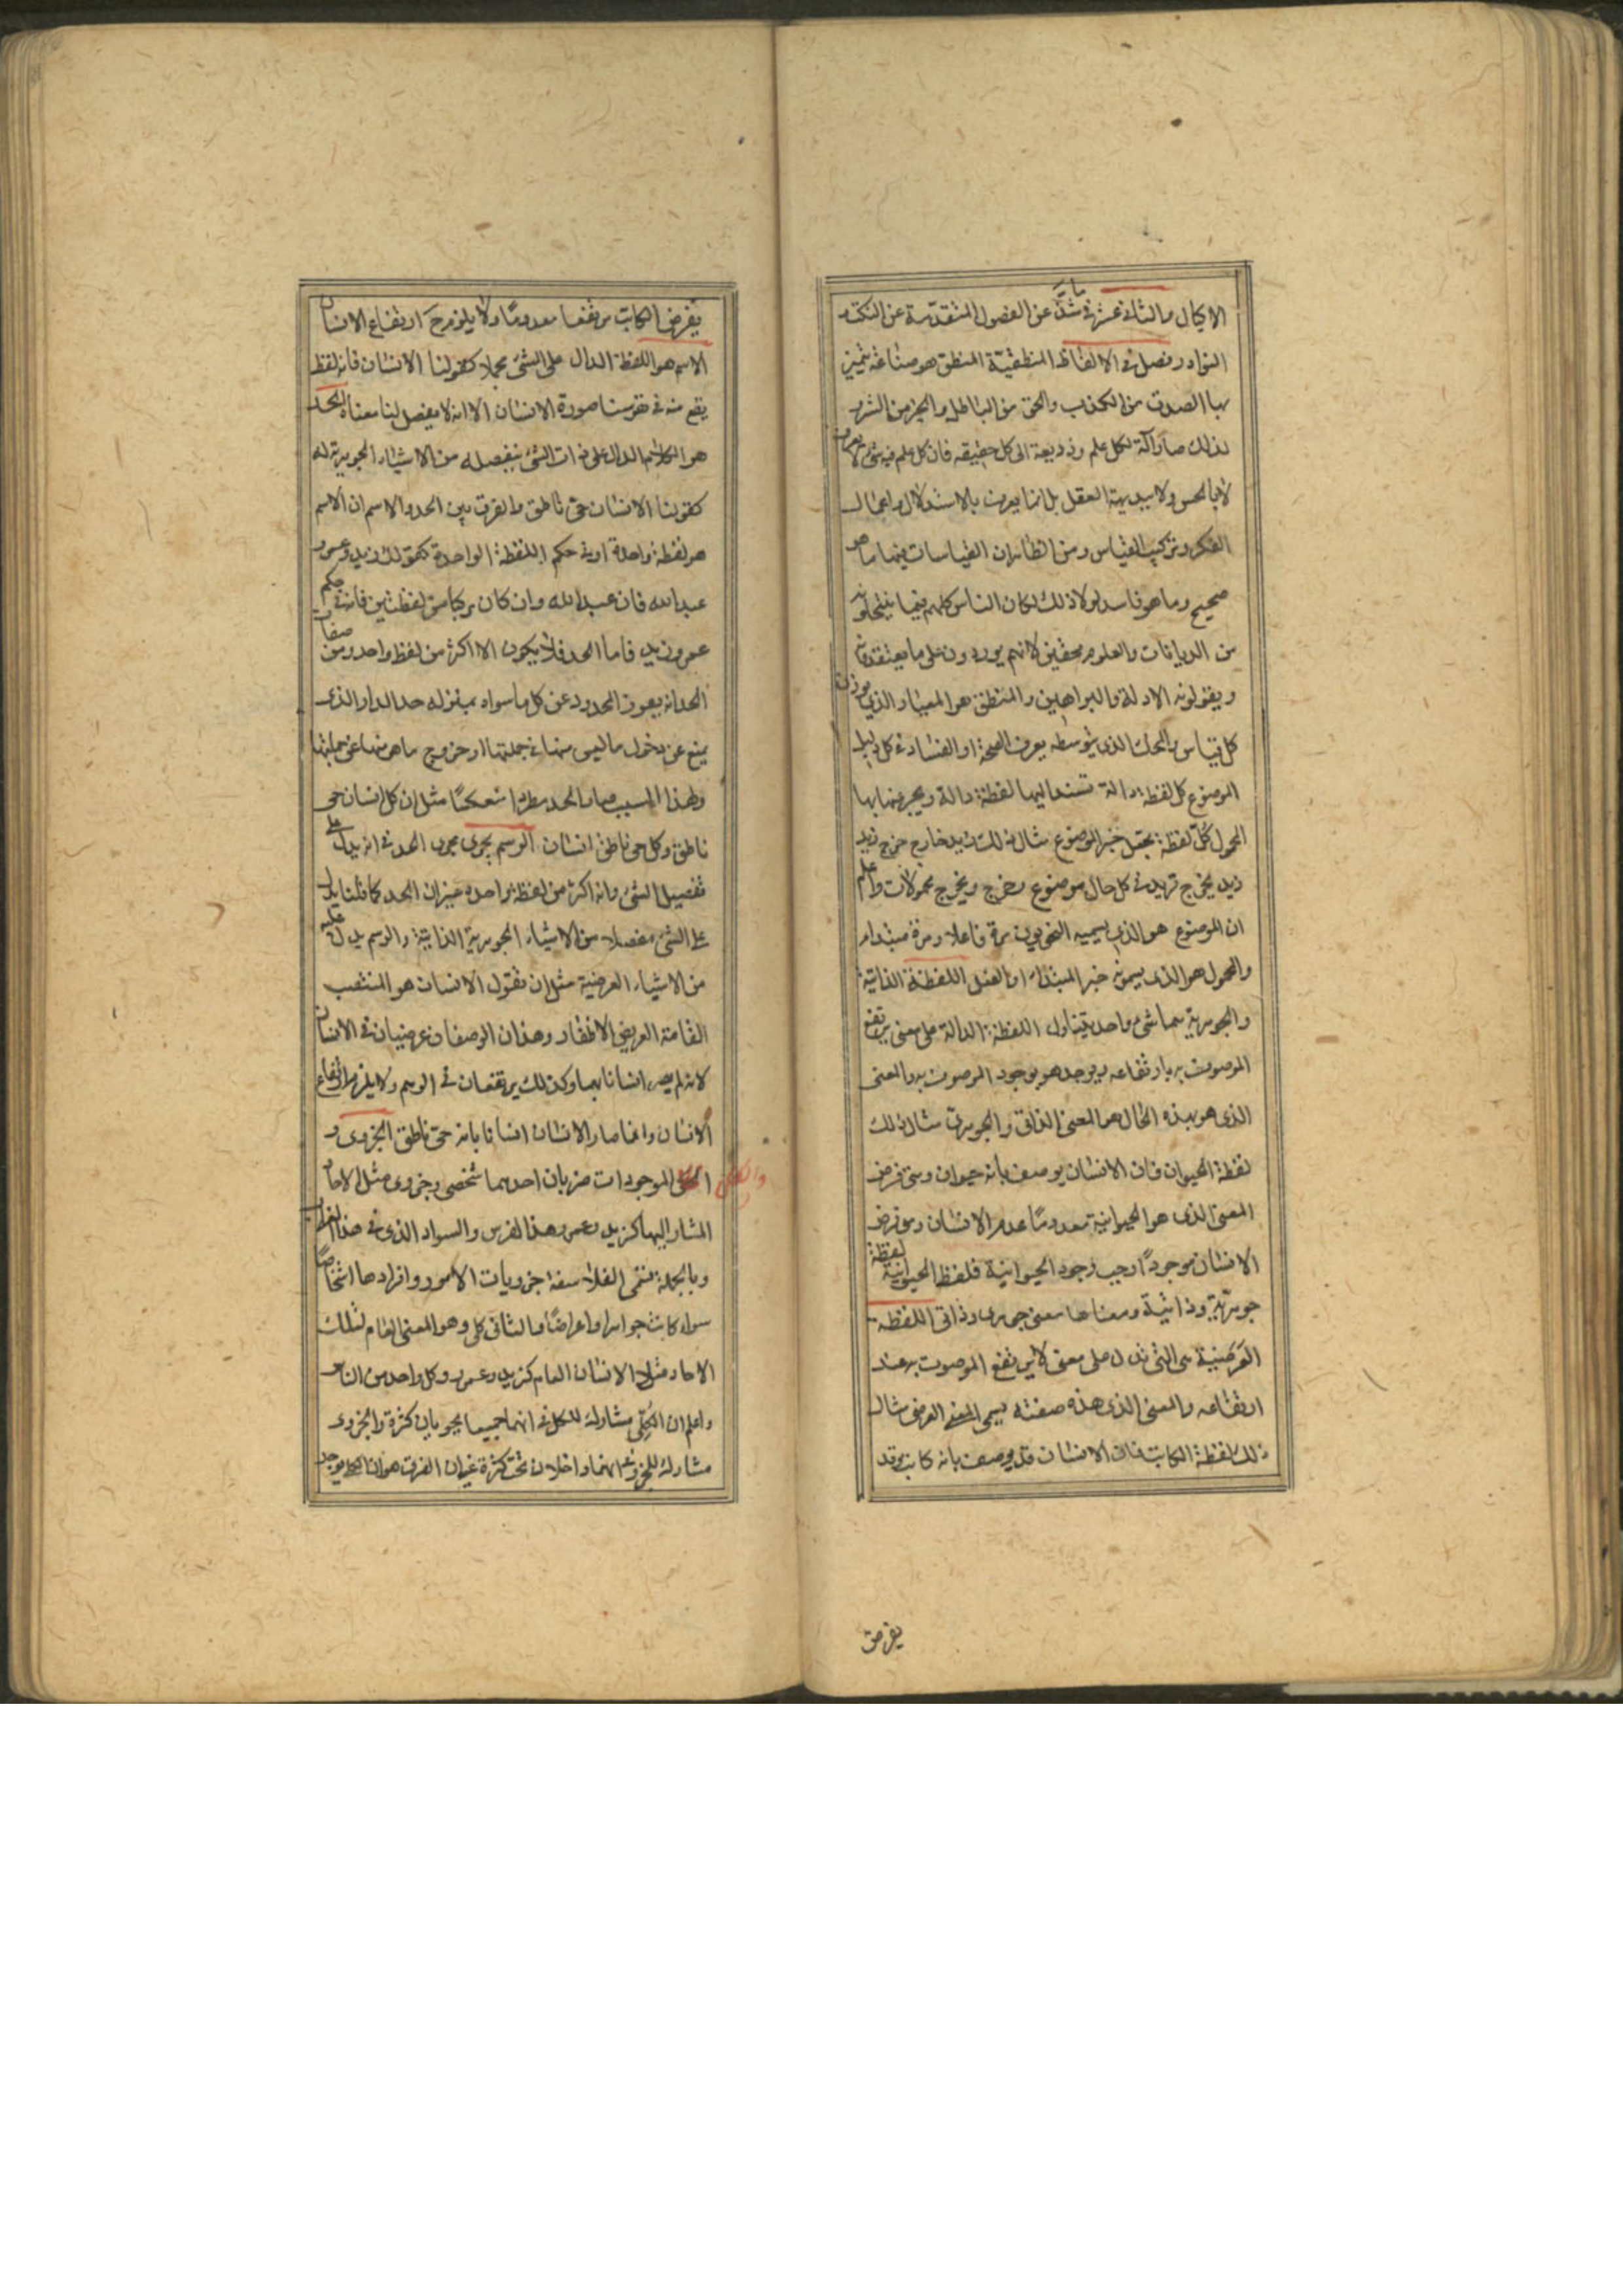 الاكيال والثانى عشر فى شذّ عن الفصول المتقدّمة عن النكت و
النوادر فصل فى الالفاظ المنطقيّة المنطق هو صناعة تميز
بها الصدق من الكذب والحق من الباطل والخير من الشر و
لذلك صار آلة لكل علم وذريعة الى كل حقيقه فان كل علم فيه شىء لا يعرف
لا بالحس ولا ببديهة العقل بل انما يعرف بالاستدلال واعمال
الفكر وتركيب القياس ومن الظاهر ان القياسات فيها ما هو
صحيح وما هو فاسد لولا ذلك لكان الناس كلهم فيما ينتحلونه
من الديانات والعلوم محقين لانهم يوردون على ما يعتقدونه
ويقولونه الادلة والبراهين والمنطق هو المعيار الذى يوزن
كل قياس والمحك الذى بتوسطه يعرف الصحة او الفساد فى كل دليل
الموضوع كل لفظة دالة تسند اليها لفظة دالة ويخبر عنها بها
المحمول كلّ لفظة تجعل خبر الموضوع مثال ذلك زيد خارج خرج زيد
زيد يخرج فزيد فى كل حال موضوع وخرج ويخرج محمولات واعلم
ان الموضوع هو الذى يسميه النحويون مرة فاعلا ومرة مبتداء
والمحمول هو الذى يسمونه خبر المبتداء او الفعل اللفظة الذاتية
والجوهرية هما شىء واحد يتناول اللفظة الدالة على معنى يرتفع
الموصوف به بارتفاعه ويوجد هو بوجود الموصوف به والمعنى
الذى هو بهذه الحال هو المعنى الذاتى والجوهرى مثال ذلك
لفظة الحيوان فان الانسان يوصف بانه حيوان ومتى فرض
المعنى الذى هو الحيوانية معدومًا عدم الانسان ومتى فرض
الانسان موجودًا وجب وجود الحيوانية فلفظ لفظة الحيوانية
جوهرية وذاتية ومعناها معنى جوهرى وذاتى اللفظه
العرضية هى التى تدل على معنى لا يرتفع الموصوف به عند
ارتفاعه والمعنى الذى هذه صفته يسمى المعنى العرضى مثال
ذلك لفظة الكاتب فان الانسان قد يوصف بانه كاتب وقد
يفرض
يفرض الكاتب مرتفعا معدومًا ولا يلزم ح ارتفاع الانسان
الاسم هو اللفظة الدال على الشئ مجملا كقولنا الانسان فانه لفظ
يقع منه فى نفوسنا صورة الانسان الا انه لا يفصل لنا معناه الحد
هو الكلام الدال على ذات الشئ بتفصيله من الاشياء الجوهرية له
كقولنا الانسان حى ناطق والفرق بين الحد والاسم ان الاسم
هو لفظة واحدة او فى حكم اللفظة الواحدة كقولك زيد وعمرو
عبد الله فان عبد الله وان كان مركبا من لفظتين فانه فى حكم
عمرو زيد فاما الحد فلا يكون الا اكثر من لفظ واحد ومن صفات
الحد انه يعرف المحدود عن كل ما سواه بمنزله حد الدار الذى
يمنع عن دخول ما ليس منها فى جملتها او خروج ما هو منها عن جملتها
ولهذا السبب صار الحد مطردا منعكسًا مثل ان كل انسان حى
ناطق وكل حى ناطق انسان الرسم يجرى مجرى الحد فى انه يدل على
تفصيل الشئ وانه اكثر من لفظة واحدة غير ان الحد كما قلنا يدل
على الشئ مفصلا من الاشياء الجوهرية الذاتية والرسم يدل عليه
من الاشياء العرضية مثل ان نقول الانسان هو المنتصب
القامة العريض الاظفار وهذان الوصفان عرضيان فى الانسان
لانه لم يصر انسانا بهما وكذلك يرتفعان فى الوهم ولا يلزم ارتفاع
الانسان وانما صار الانسان انسانا بانه حى ناطق الجزوى و
الكلى الموجودات ضربان احدهما شخصى وجزوى مثل الاحاد
والكلى
المشار اليها كزيد وعمرو وهذا الفرس والسواد الذى فى هذا الغراب
وبالجملة تسمى الفلاسفة جزويات الامور وافرادها اشخاصًا
سواء كانت جواهر او اعراضًا والثانى كلى وهو المعنى العام لتلك
الاحاد مثل الانسان العام كزيد وعمرو وكل واحد من الناس
واعلم ان الكلى مشارك للكل فى انهما جميعا يحويان كثرة والجزوى
مشارك للجزو فى انهما داخلان تحت كثرة غير ان الفرق هو ان الكل يوجد